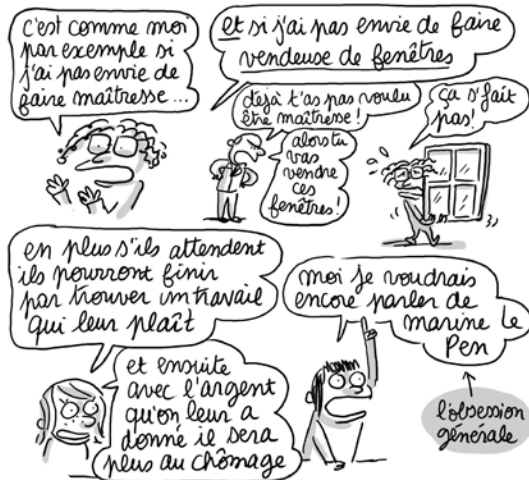 c'est comme moi
par exemple si
j'ai pas envie de
faire maîtresse...
et si j'ai pas envie de faire
vendeuse de fenêtres
déjà t'as pas voulu
être maîtresse !
alors tu
vas
vendre
ces
fenêtres !
ça s'fait
pas !
en plus s'ils attendent
ils pourront finir
par trouver un travail
qui leur plaît
et ensuite
avec l'argent
qu'on leur a
donné il sera
plus au chômage
moi je voudrais
encore parler de
marine le
Pen
l'obsession
générale